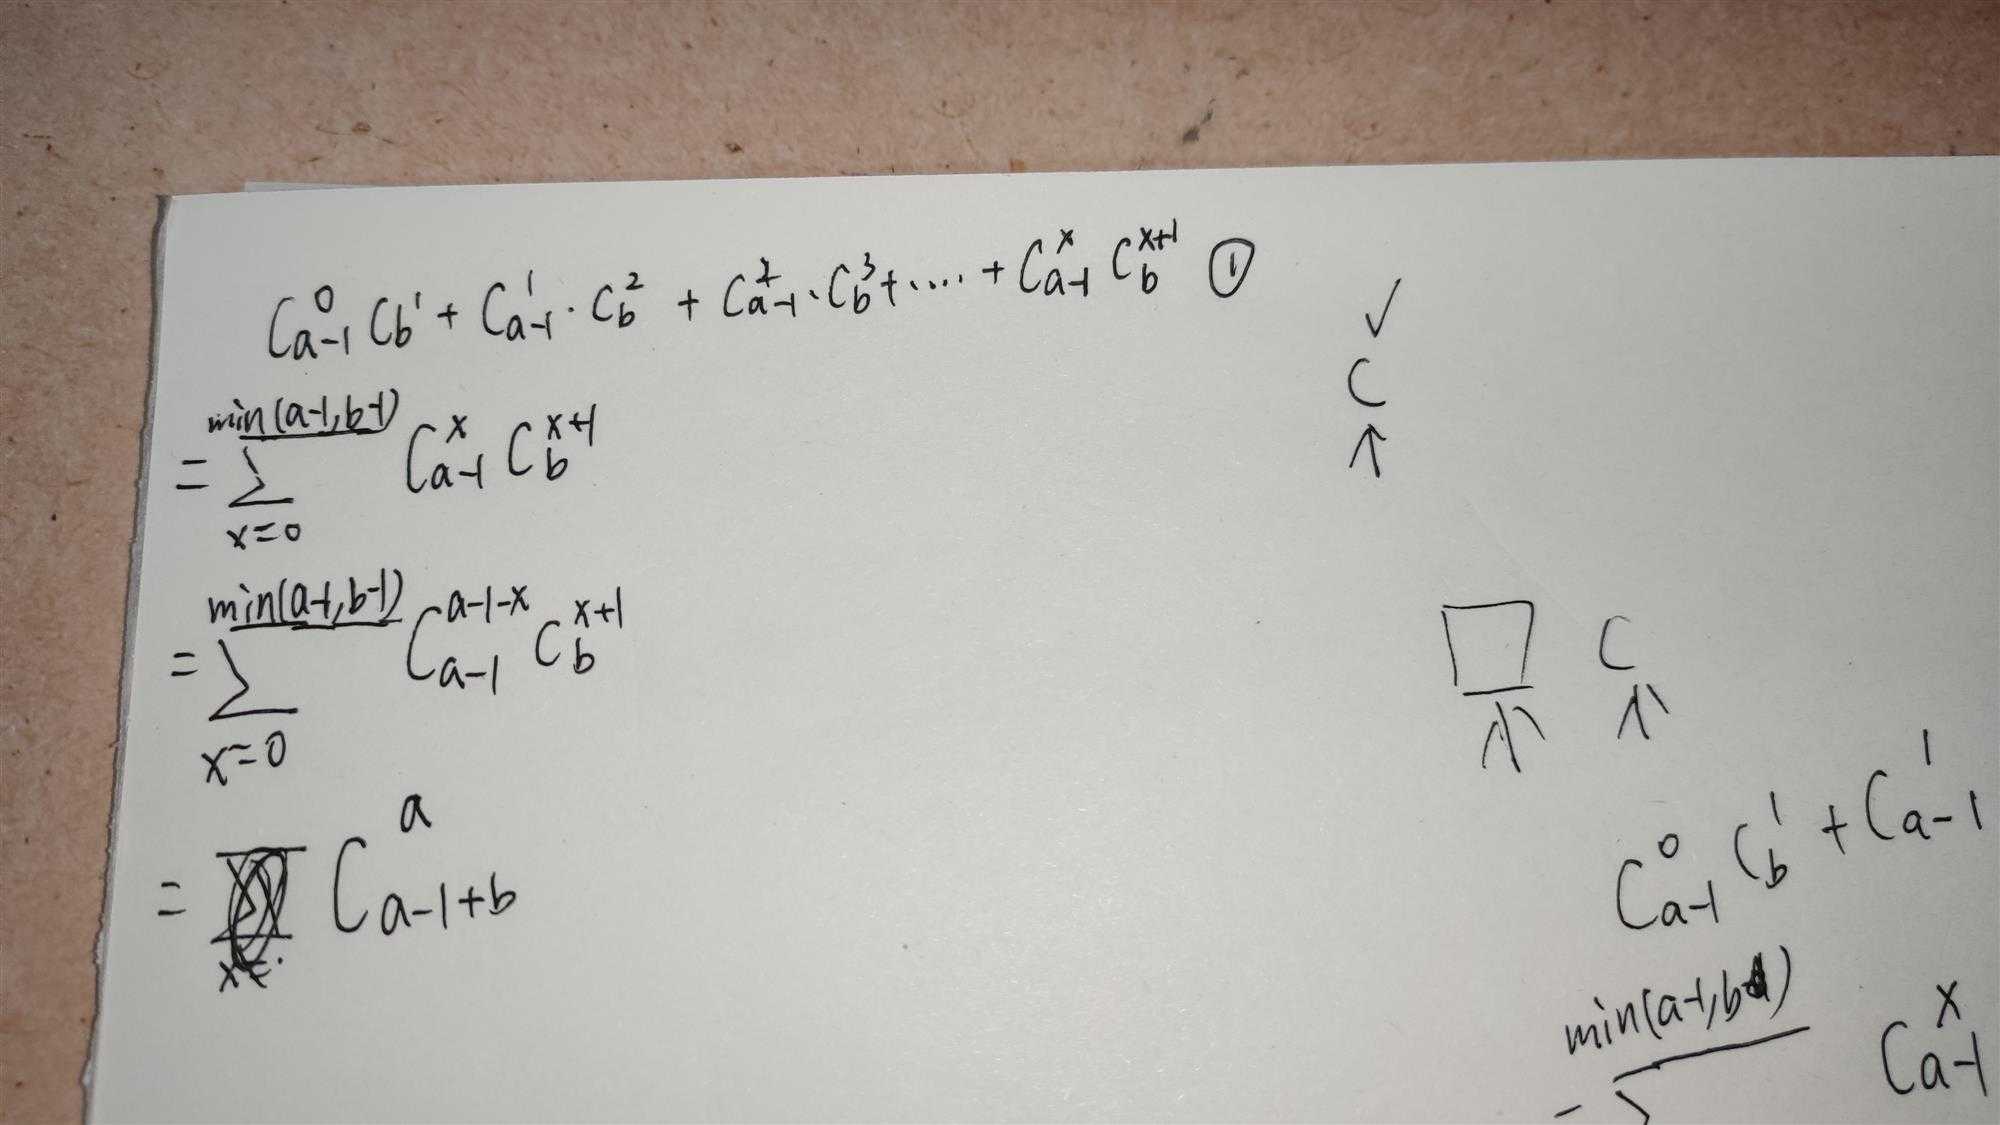 C_{a-1}^{0} C_{b}^{1} + C_{a-1}^{1} · C_{b}^{2} + C_{a-1}^{2} · C_{b}^{3} + .... + C_{a-1}^{x} C_{b}^{x+1} ①
✓
C
↑
min(a-1,b-1)
= Σ C_{a-1}^{x} C_{b}^{x+1}
x=0
min(a-1,b-1)
= Σ C_{a-1}^{a-1-x} C_{b}^{x+1}
x=0
= C_{a-1+b}^{a}
C
C_{a-1}^{0} C_{b}^{1} + C_{a-1}^{1}
min(a-1,b-1)
= Σ C_{a-1}^{x}